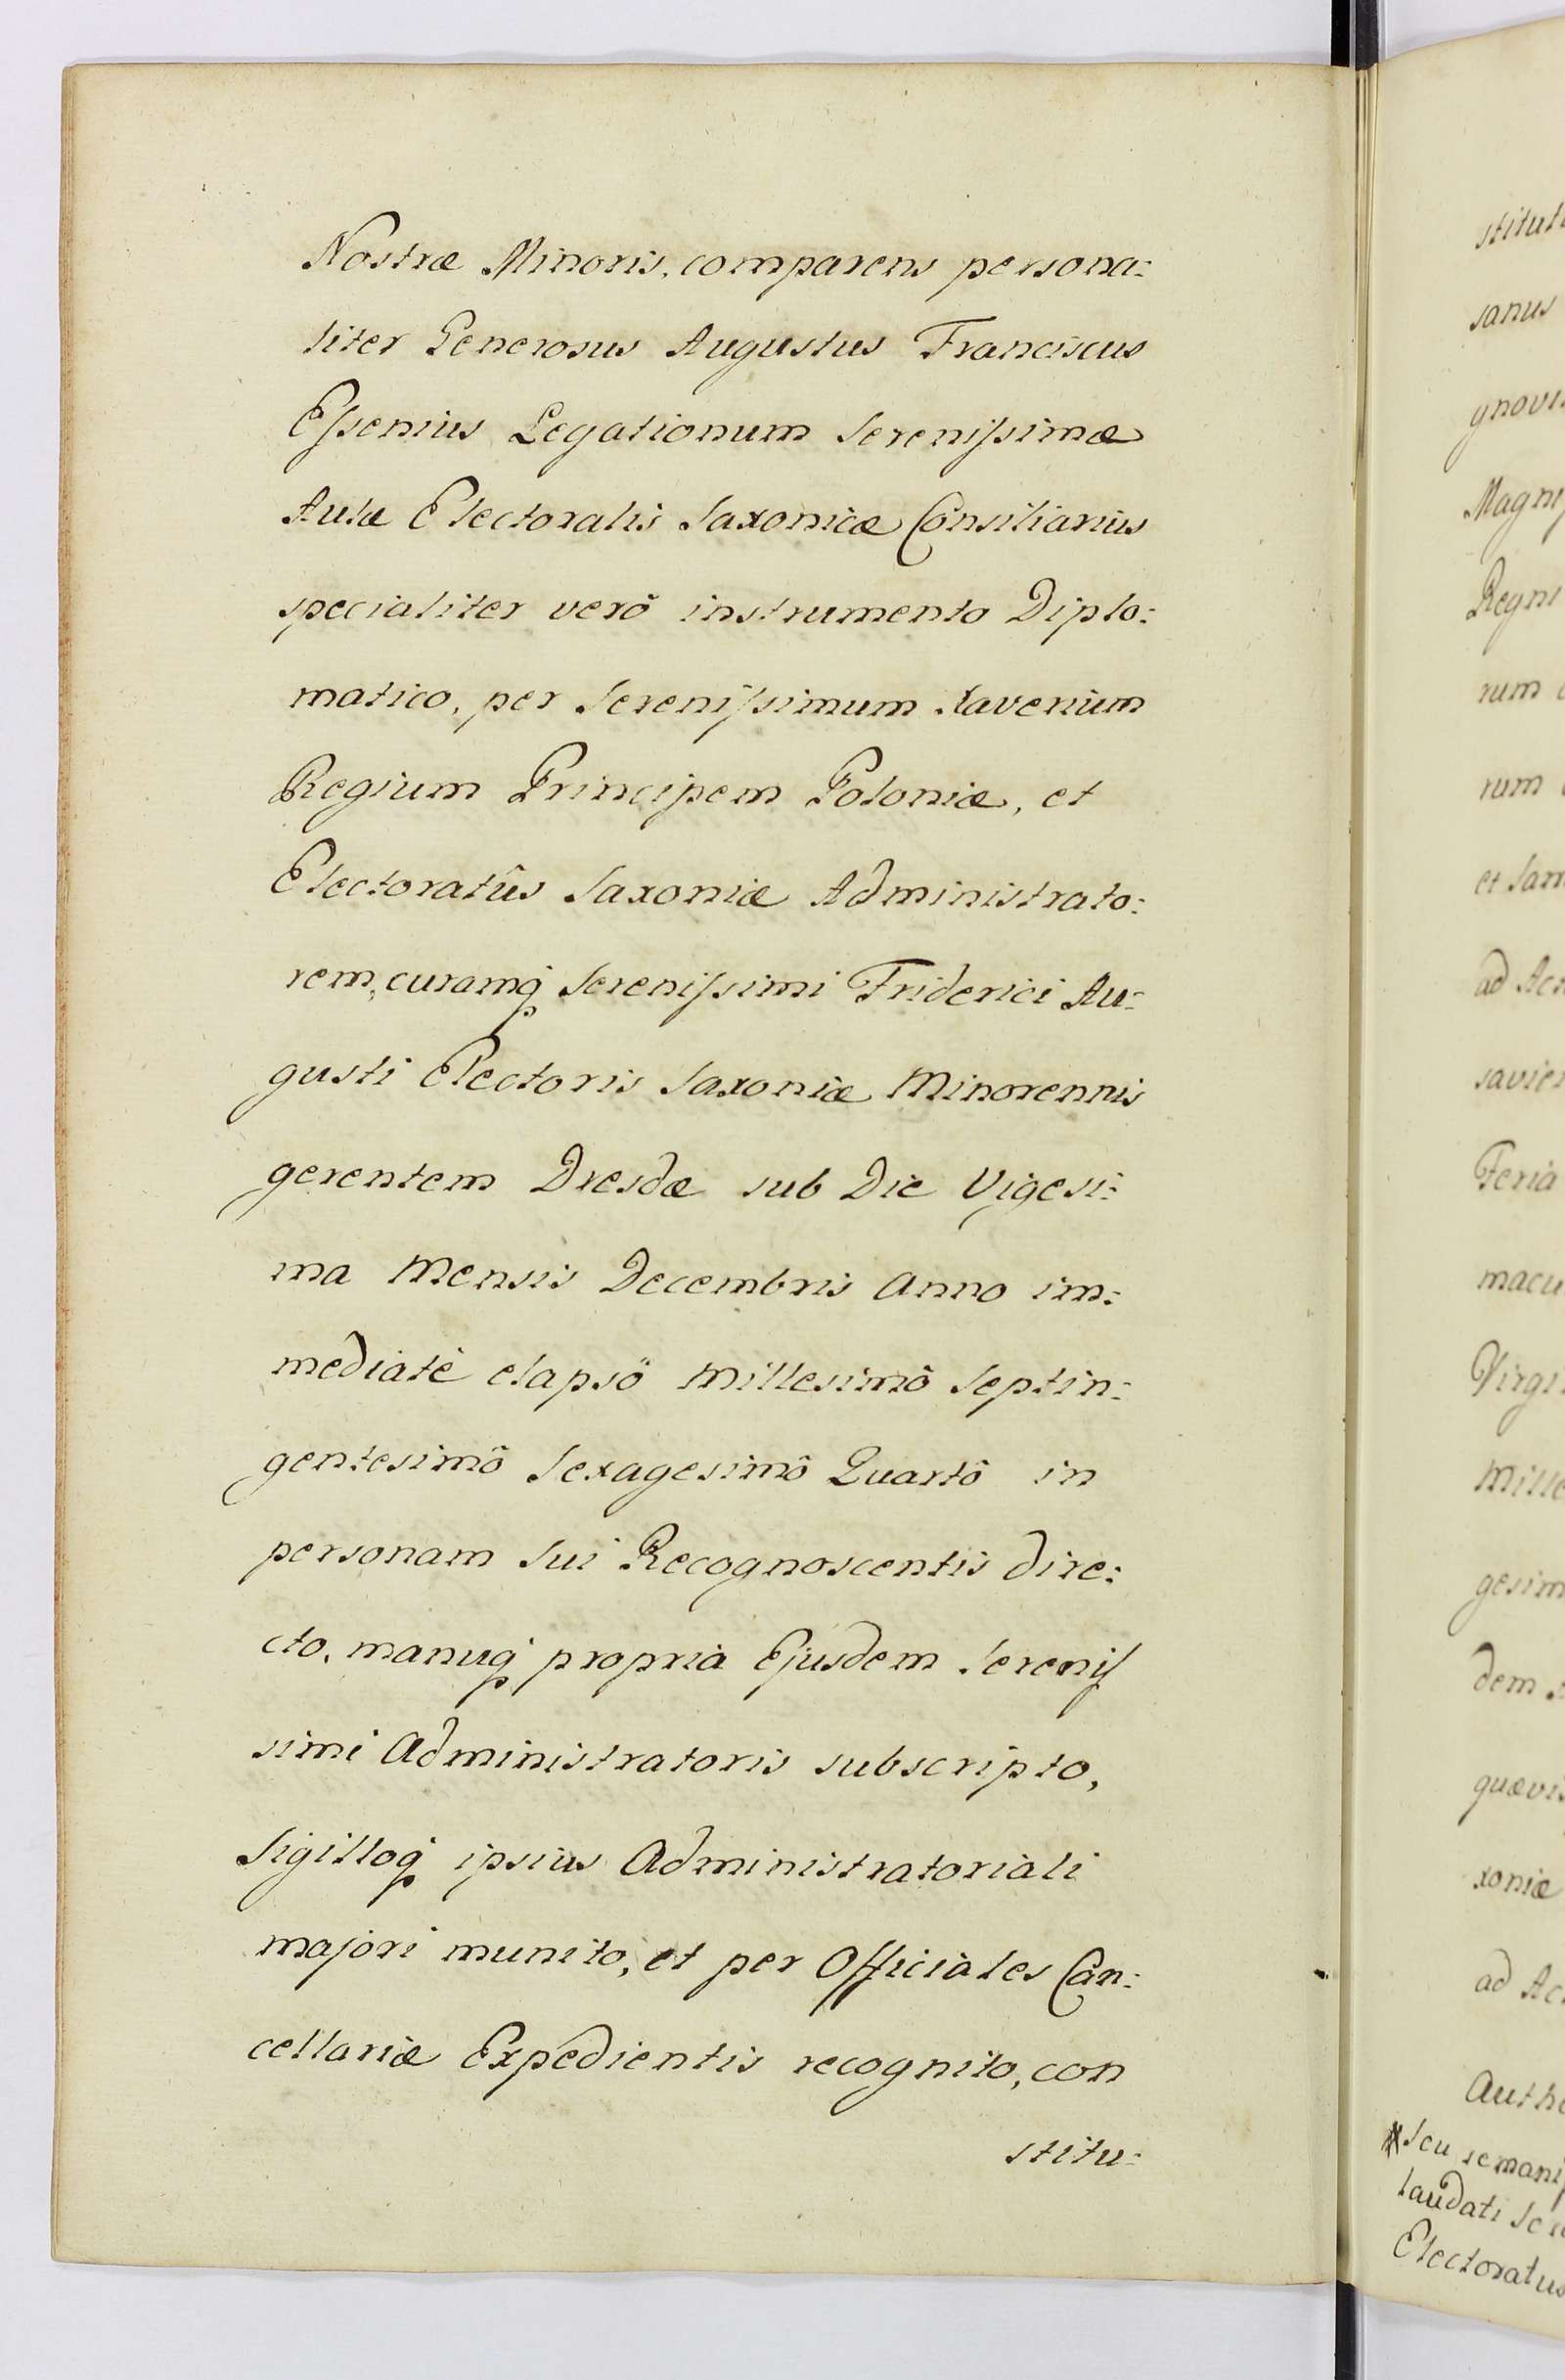 Nostræ Minoris, comparens persona:
liter Generosus Augustus Franciscus
Eſsenius Legationum Sereniſsimæ
Aulæ Electoralis Saxonicæ Consiliarius
specialiter verô instrumento Diplo:
matico, per Sereniſsimum Xaverium
Regium Principem Poloniæ, et
Electoratûs Saxoniæ Administrato:
rem, curamq́ Sereniſsimi Friderici Au:
gusti Electoris Saxoniæ Minorennis
gerentem Dresdæ sub Die Vigesi:
ma Mensis Decembris Anno im:
mediatè elapsô Millesimô Septin:
gentesimô Sexagesimô Quartô in
personam sui Recognoscentis dire:
cto, manuq́ propria Ejusdem Sereniſ
simi Administratoris subscripto,
Sigilloq́ ipsius Administratoriali
majori munito, et per Officiales Can:
cellariæ Expedientis recognito, con
stitu:
stitut
sanus
gnovi
Magni
Regni
rum
rum
et Sam
ad Act
savien
Feria
macu
Virgi
Mille
gesim
dem
quævis
xoniæ
ad Ac
Autho
seu se mani
laudati Se
Electoratus